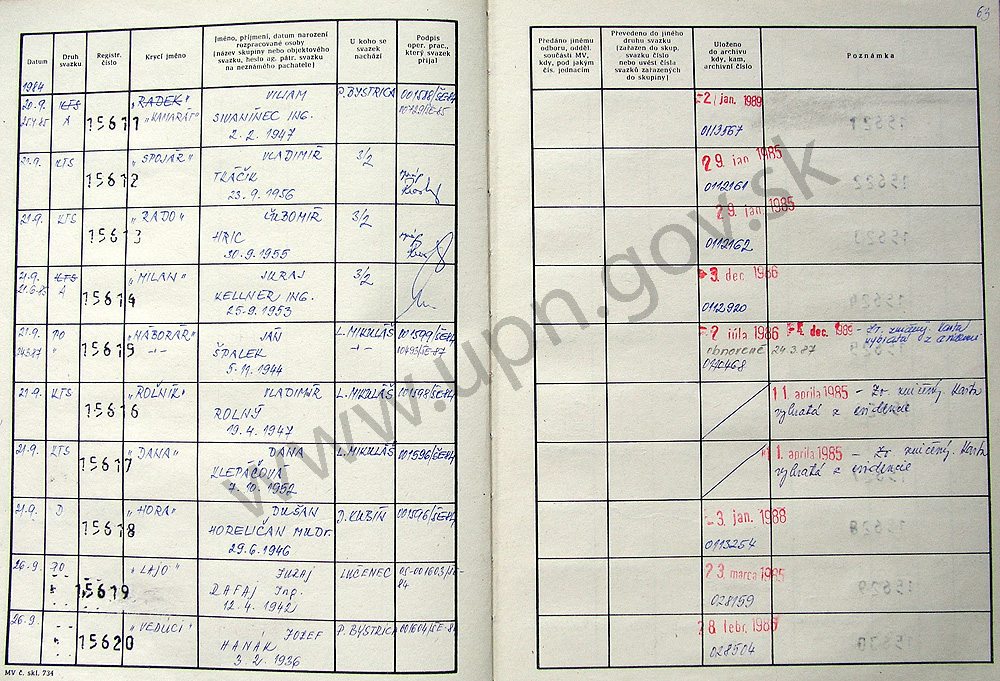 63
Datum
Druh svazku
Registr. číslo
Krycí jméno
Jméno, příjmení, datum narození
rozpracované osoby
(název skupiny nebo objektového
svazku, heslo ag. pátr. svazku
na neznámého pachatele)
U koho se
svazek
nachází
Podpis
oper. prac.,
který svazek
přijal
Předáno jinému
odboru, odděl.
součásti MV,
kdy, pod jakým
čís. jednacím
Převedeno do jiného
druhu svazku
(zařazen do skup.
svazku číslo
nebo uvést čísla
svazků zařazených
do skupiny)
Uloženo
do archivu
kdy, kam,
archivní číslo
Poznámka
1984
20.9. KTS 15611 "RADEK" VILIAM P. BYSTRICA 001588/ŠE-84 -2 jan. 1989
A "KAMARÁT" SIVANINEC ING.
2. 2. 1947 0113567
21.9. KTS 15612 "SPOJÁŘ" VLADIMÍR 3/2 29. jan 1985
TKÁČIK
23.9. 1956 0112161
21.9. KTS 15613 "RADO" ĽUBOMÍR 3/2 29. jan. 1985
HRIC
30.9. 1955 0112162
21.9. KTS 15614 "MILAN" JURAJ 3/2 -3. dec. 1986
A KELLNER ING.
25.9. 1953 0112920
21.9. PO 15615 "NÁBORÁŘ" JÁN L. MIKULÁŠ 001599/ŠE-84 -2 júla 1986 -4. dec. 1989 - Zv. zničený. Karta
24.3.87 " -"- ŠPALEK -"- obnovené 24.3.87 vybratá z evidencie
5. 11. 1944
21.9. KTS 15616 "ROĽNÍK" VLADIMÍR L. MIKULÁŠ 001598/ŠE-84 11. apríla 1985 - Zv. zničený. Karta
ROLNÝ vybratá z evidencie
19. 4. 1947
21.9. KTS 15617 "DANA" DANA L. MIKULÁŠ 001596/ŠE-84 1. apríla 1985 - Zv. zničený. Karta
KLEPÁČOVÁ vybratá z evidencie
7. 10. 1952
21.9. D 15618 "HORA" DUŠAN D. KUBÍN -3. jan. 1988
HORELIČAN MUDr.
29.6. 1946 0113254
26.9. PO 15619 "LAJO" JURAJ LUČENEC OS-001603/ŠE-84 23 marca 1985
RAFAJ Ing.
12. 4. 1942 028159
26.9. -"- 15620 "VEDÚCI" JOZEF P. BYSTRICA 28 febr.
HANÁK
3. 2. 1936 028504
MV č. skl. 734
www.upn.gov.sk